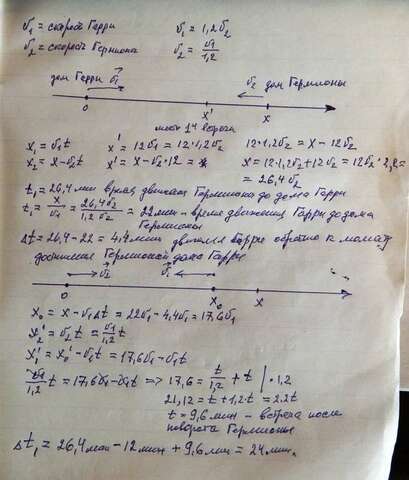 v₁ = скорость Гарри v₁ = 1,2v₂
v₂ = скорость Гермионы v₂ = v₁/1,2
дом Гарри v₁ v₂ дом Гермионы
0 x' x
место 1й встречи
x₁ = v₁t x' = 12v₁ = 12·1,2v₂ 12·1,2v₂ = x - 12v₂
x₂ = x - v₂t x' = x - v₂·12 = x = 12·1,2v₂ + 12v₂ = 12v₂·2,2 =
= 26,4v₂
t₁ = 26,4 мин время движения Гермионы до дома Гарри
t₁ = x/v₁ = 26,4v₂/1,2v₂ = 22 мин - время движения Гарри до дома
Гермионы
Δt = 26,4 - 22 = 4,4 мин двигался Гарри обратно к моменту
достижения Гермионой дома Гарри
v₂ v₁
0 x₀ x
x₀ = x - v₁Δt = 22v₁ - 4,4v₁ = 17,6v₁
x₂' = v₂t = v₁/1,2 t
x₁' = x₀' - v₁t = 17,6v₁ - v₁t
v₁/1,2 t = 17,6v₁ - v₁t => 17,6 = t/1,2 + t | · 1,2
21,12 = t + 1,2t = 2,2t
t = 9,6 мин - встреча после
поворота Гермионы
Δt₁ = 26,4 мин - 12 мин + 9,6 мин = 24 мин.